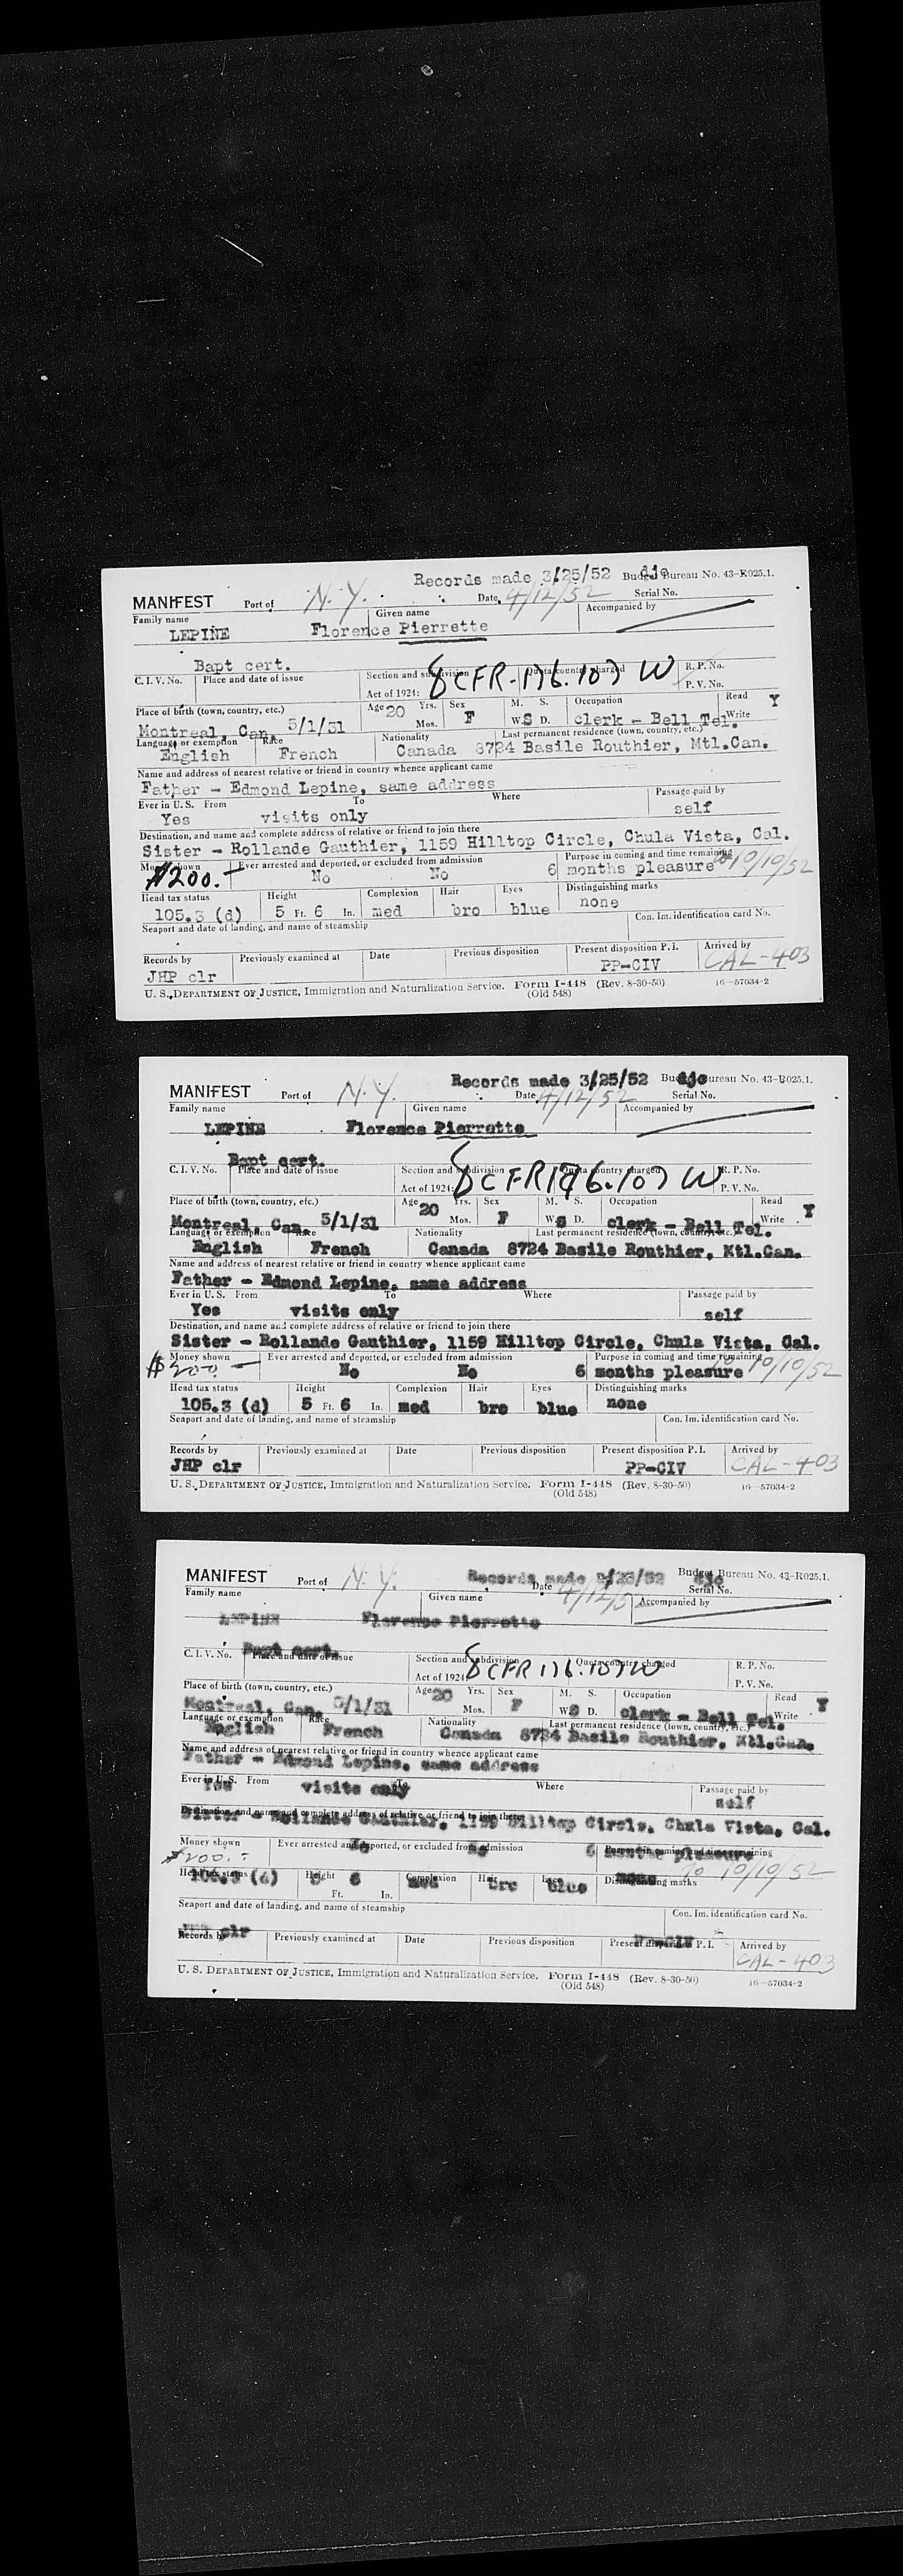 Records made 3/25/52 Budget Bureau No. 43-R025.1.
djc
MANIFEST Port of N.Y. Date 4/12/52 Serial No.
Family name Given name Accompanied by
LEPINE Florence Pierrette
Bapt cert.
C. I. V. No. Place and date of issue Section and subdivision Quota country charged R. P. No.
Act of 1924: 8 CFR-176.107 W P. V. No.
Place of birth (town, country, etc.) Age 20 Yrs. Mos. Sex F M. S. W. S D. Occupation Read Write Y
Montreal, Can. 5/1/31 clerk - Bell Tel.
Language or exemption Race Nationality Last permanent residence (town, country, etc.)
English French Canada 8724 Basile Routhier, Mtl.Can.
Name and address of nearest relative or friend in country whence applicant came
Father - Edmond Lepine, same address
Ever in U. S. From To Where Passage paid by
Yes visits only self
Destination, and name and complete address of relative or friend to join there
Sister - Rollande Gauthier, 1159 Hilltop Circle, Chula Vista, Cal.
Money shown Ever arrested and deported, or excluded from admission Purpose in coming and time remaining
$200.- No No 6 months pleasure to 10/10/52
Head tax status Height Complexion Hair Eyes Distinguishing marks
105.3 (d) 5 Ft. 6 In. med bro blue none
Seaport and date of landing, and name of steamship Con. Im. identification card No.
Records by Previously examined at Date Previous disposition Present disposition P. I. Arrived by
JHP clr PP-CIV CAL-403
U. S. DEPARTMENT OF JUSTICE, Immigration and Naturalization Service. Form I-448 (Rev. 8-30-50) 16-57034-2
(Old 548)
Records made 3/25/52 Bureau No. 43-R025.1.
djc
MANIFEST Port of N.Y. Date 4/12/52 Serial No.
Family name Given name Accompanied by
LEPINE Florence Pierrette
Bapt cert.
C. I. V. No. Place and date of issue Section and subdivision Quota country charged R. P. No.
Act of 1924: 8 CFR 176.107 W P. V. No.
Place of birth (town, country, etc.) Age 20 Yrs. Mos. Sex F M. S. W. S D. Occupation Read Write Y
Montreal, Can. 5/1/31 clerk - Bell Tel.
Language or exemption Race Nationality Last permanent residence (town, country, etc.)
English French Canada 8724 Basile Routhier, Mtl.Can.
Name and address of nearest relative or friend in country whence applicant came
Father - Edmond Lepine, same address
Ever in U. S. From To Where Passage paid by
Yes visits only self
Destination, and name and complete address of relative or friend to join there
Sister - Rollande Gauthier, 1159 Hilltop Circle, Chula Vista, Cal.
Money shown Ever arrested and deported, or excluded from admission Purpose in coming and time remaining
$200- No No 6 months pleasure to 10/10/52
Head tax status Height Complexion Hair Eyes Distinguishing marks
105.3 (d) 5 Ft. 6 In. med bro blue none
Seaport and date of landing, and name of steamship Con. Im. identification card No.
Records by Previously examined at Date Previous disposition Present disposition P. I. Arrived by
JHP clr PP-CIV CAL-403
U. S. DEPARTMENT OF JUSTICE, Immigration and Naturalization Service. Form I-448 (Rev. 8-30-50) 16-57034-2
(Old 548)
Records made 3/25/52 Budget Bureau No. 43-R025.1.
djc
MANIFEST Port of N.Y. Date 4/12/52 Serial No.
Family name Given name Accompanied by
LEPINE Florence Pierrette
Bapt cert.
C. I. V. No. Place and date of issue Section and subdivision Quota country charged R. P. No.
Act of 1924 8 CFR 176.107 W P. V. No.
Place of birth (town, country, etc.) Age 20 Yrs. Mos. Sex F M. S. W. S D. Occupation Read Write Y
Montreal, Can. 5/1/31 clerk - Bell Tel.
Language or exemption Race Nationality Last permanent residence (town, country, etc.)
English French Canada 8724 Basile Routhier, Mtl.Can.
Name and address of nearest relative or friend in country whence applicant came
Father - Edmond Lepine, same address
Ever in U. S. From To Where Passage paid by
Yes visits only self
Destination, and name and complete address of relative or friend to join there
Sister - Rollande Gauthier, 1159 Hilltop Circle, Chula Vista, Cal.
Money shown Ever arrested and deported, or excluded from admission Purpose in coming and time remaining
$200.- No No 6 months pleasure to 10/10/52
Head tax status Height Complexion Hair Eyes Distinguishing marks
105.3 (d) 5 Ft. 6 In. med bro blue none
Seaport and date of landing, and name of steamship Con. Im. identification card No.
JHP clr PP-CIV
Records by Previously examined at Date Previous disposition Present disposition P. I. Arrived by
CAL-403
U. S. DEPARTMENT OF JUSTICE, Immigration and Naturalization Service. Form I-448 (Rev. 8-30-50) 16-57034-2
(Old 548)